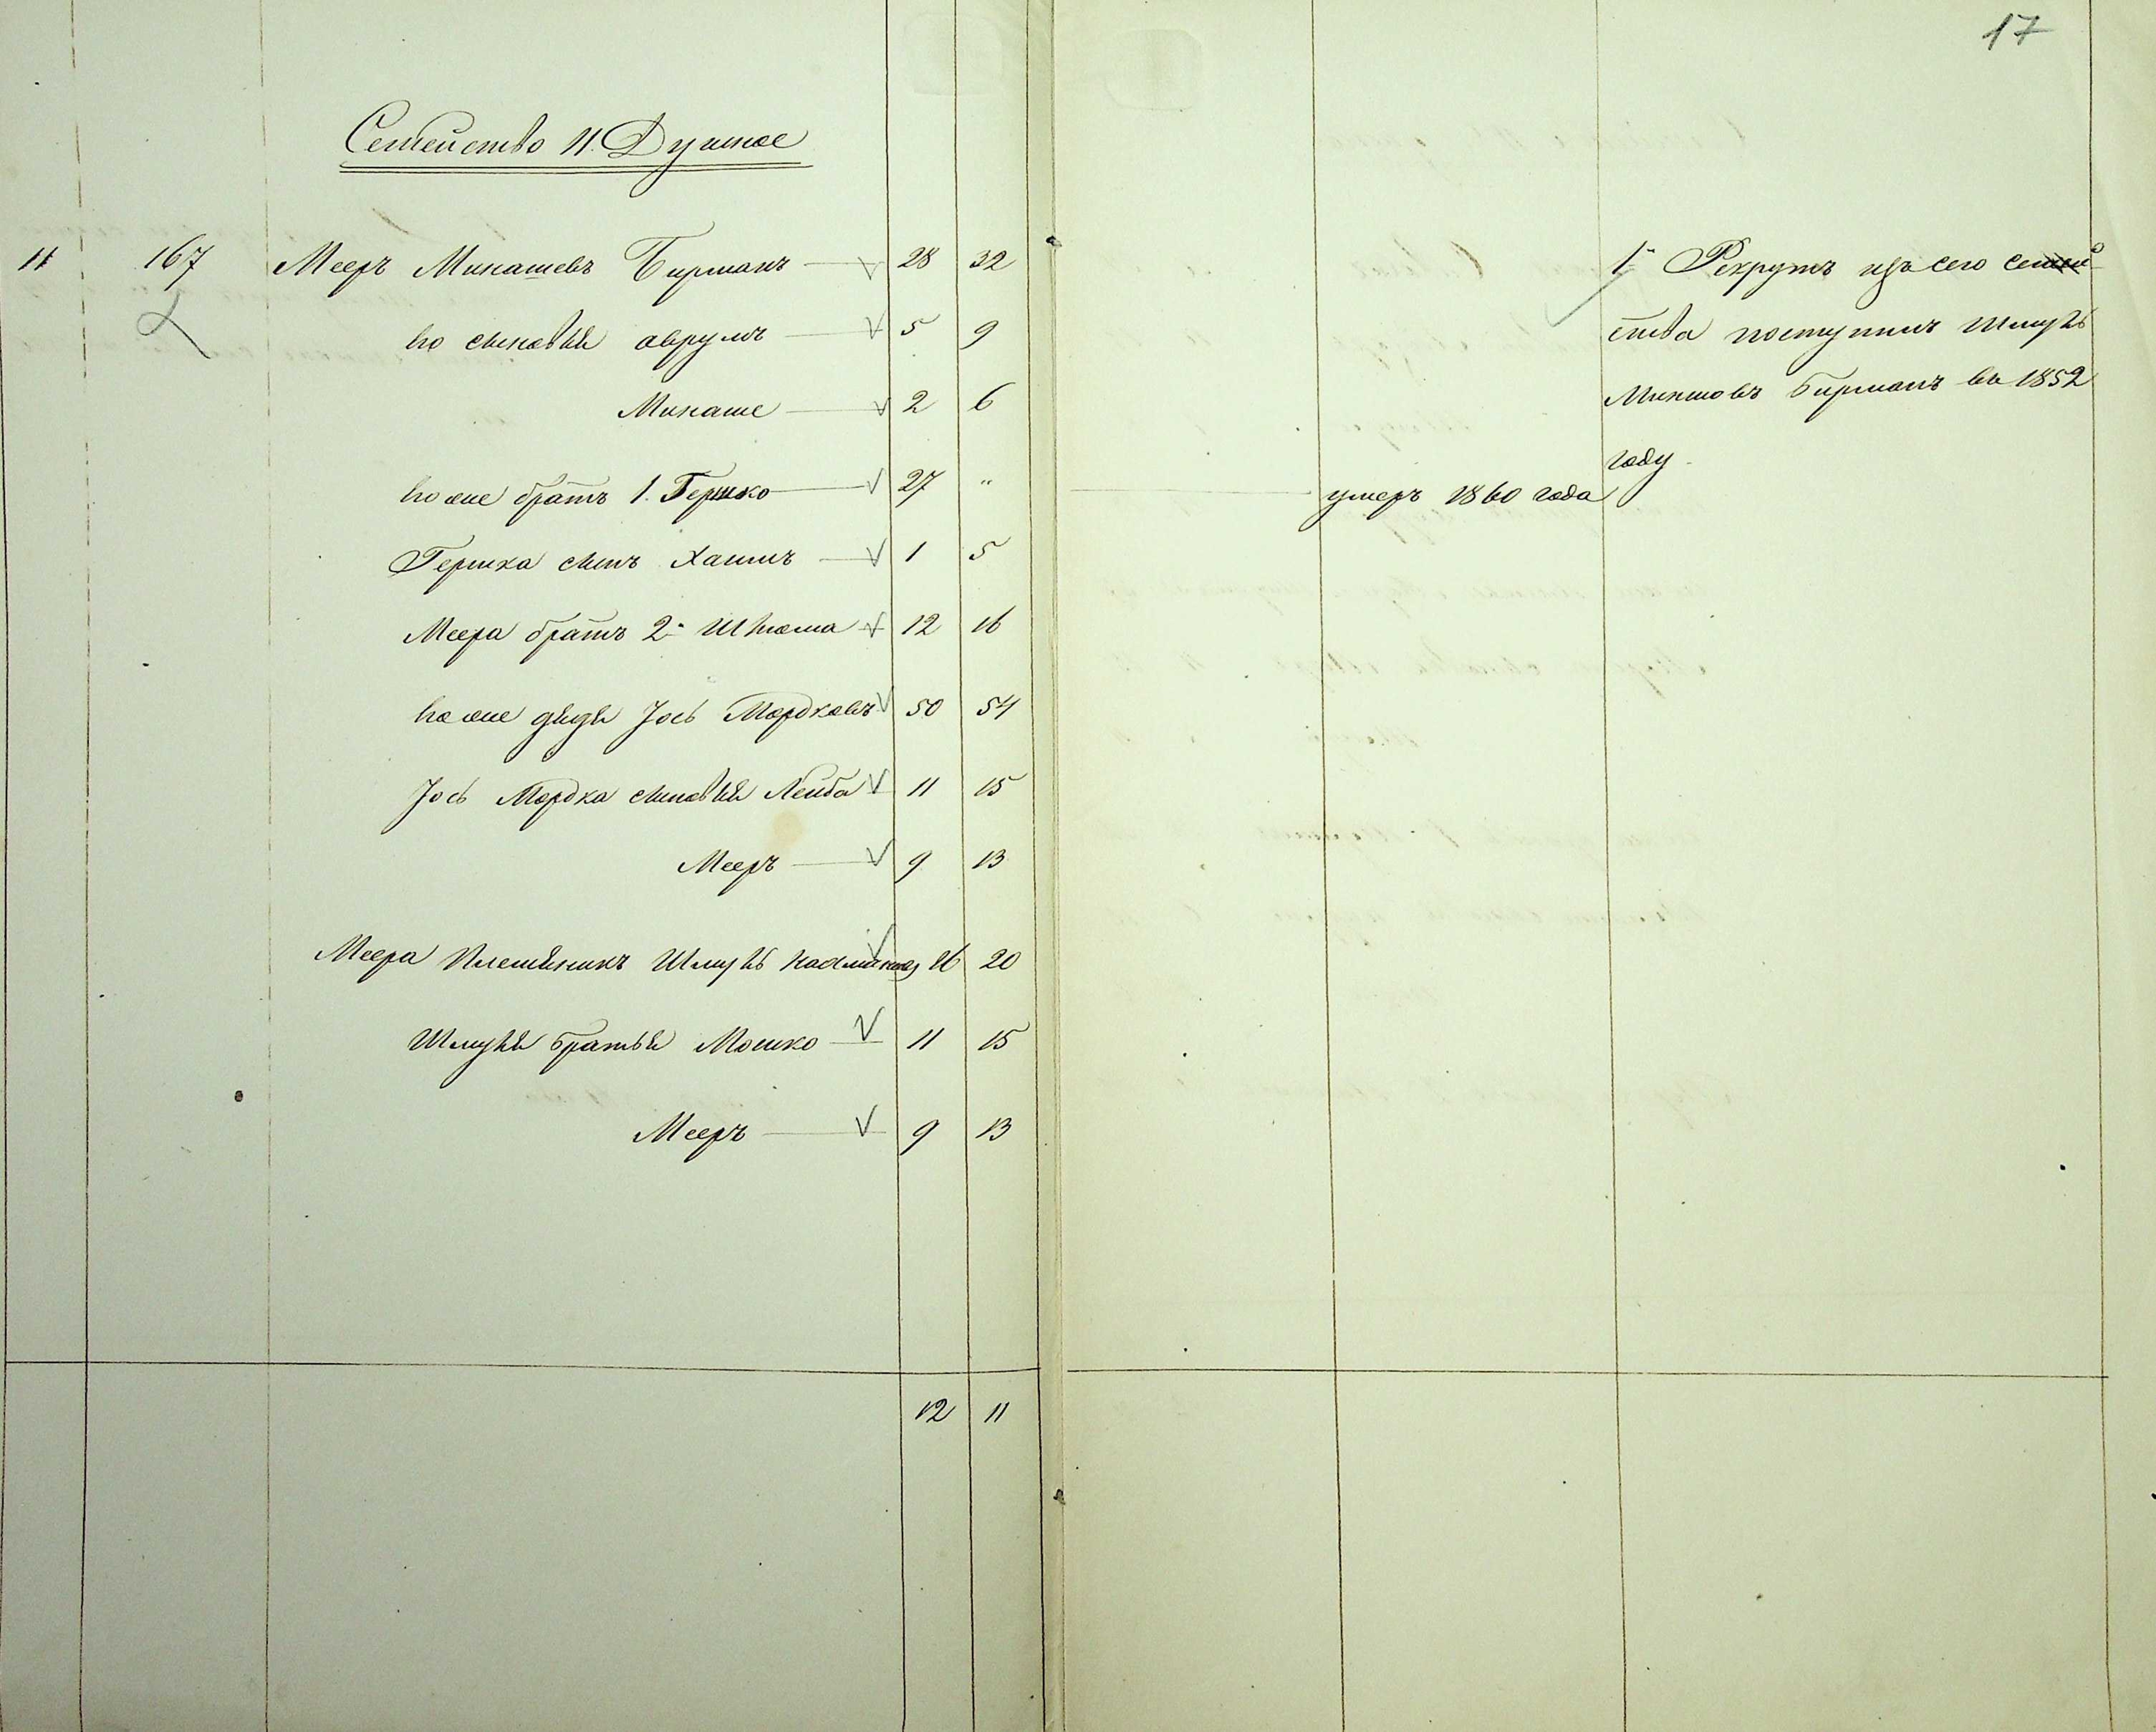 17
Семейство 11. Душное
11 167 Мееръ Минашевъ Бирманъ 28 32
его сыновья аврумъ 5 9
Минаше 2 6
его же братъ 1. Гершко 27 "
Гершка сынъ Хаимъ 1 5
Меера братъ 2й 12 16
его же дядя Іось Мордковъ 50 54
Іось Мордка сыновья Лейба 11 15
Мееръ 9 13
Меера племяникъ Шмуль 16 20
Шмуля братья Мошко 11 15
Мееръ 9 13
12 11
умеръ 1860 года
1й Рекрутъ изъ сего семей
ства поступилъ Шмуль
Миншовъ Бирманъ въ 1852
году